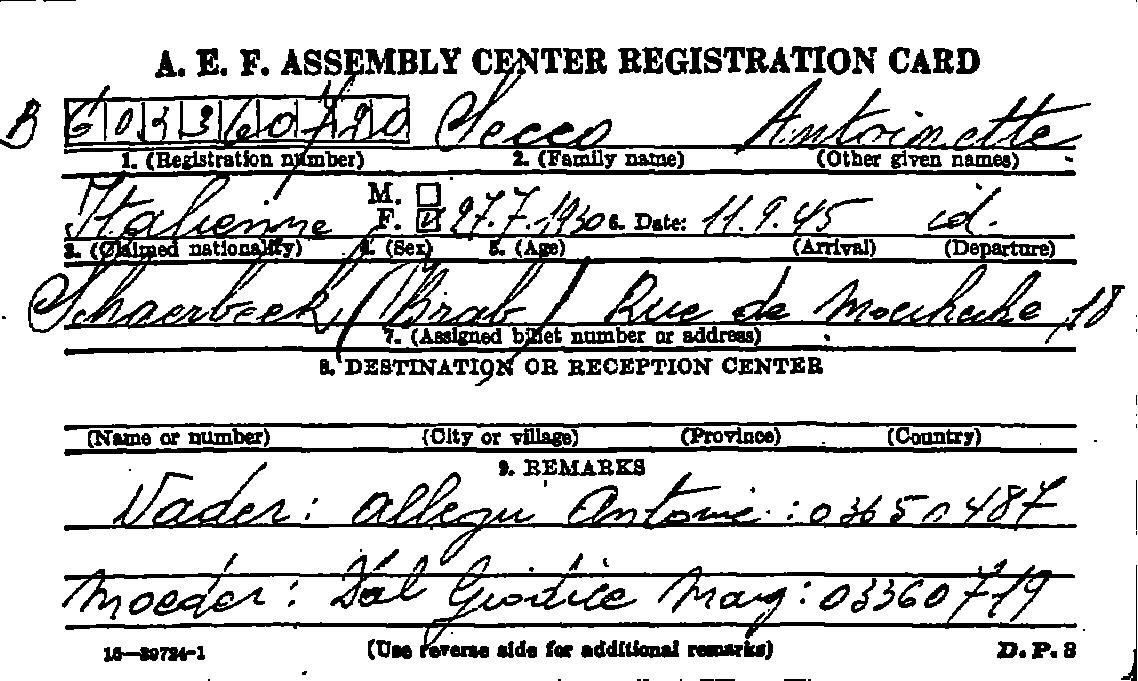 A. E. F. ASSEMBLY CENTER REGISTRATION CARD
B 6033 60720 Secco Antoinette
1. (Registration number) 2. (Family name) (Other given names)
Italienne M. F. 27.7.1930 6. Date: 11.9.45 id.
3. (Claimed nationality) 4. (Sex) 5. (Age) (Arrival) (Departure)
Schaerbeek (Brab) Rue de 18
7. (Assigned billet number or address)
8. DESTINATION OR RECEPTION CENTER
(Name or number) (City or village) (Province) (Country)
9. REMARKS
Vader: Antonie: 03650487
Moeder: Dal Giodice Marg: 03360719
16—39724-1 (Use reverse side for additional remarks) D. P. 3